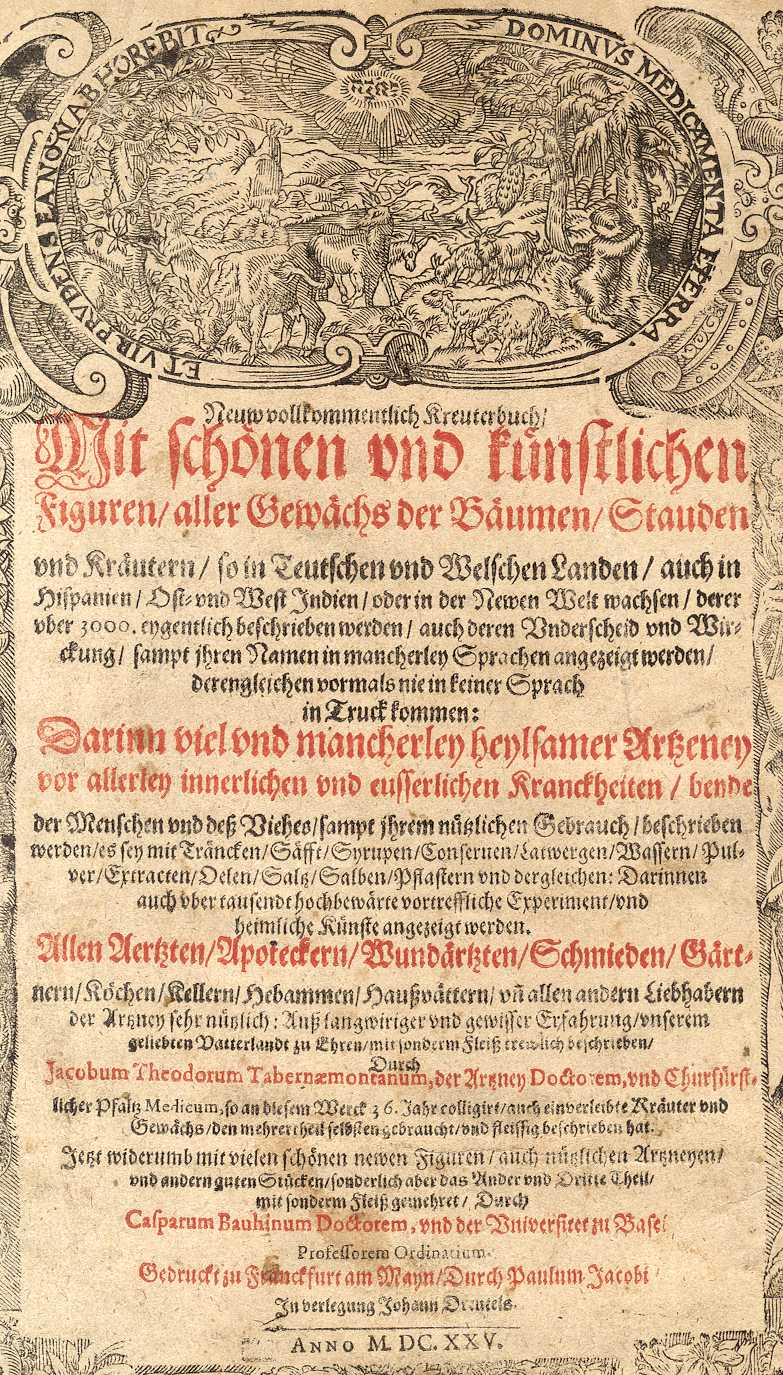 DOMINVS MEDICAMENTA E TERRA.
ET VIR PRVDENS EA NON ABHOREBIT
יהוה
Neuw vollkommentlich Kreuterbuch/
Mit schönen vnd künstlichen
Figuren/ aller Gewächs der Bäumen/ Stauden
vnd Kräutern/ so in Teutschen vnd Welschen Landen/ auch in
Hispanien/ Ost- vnd West Indien/ oder in der Newen Welt wachsen/ derer
vber 3000. eygentlich beschrieben werden/ auch deren Vnderscheid vnd Wir-
ckung/ sampt jhren Namen in mancherley Sprachen angezeigt werden/
derengleichen vormals nie in keiner Sprach
in Truck kommen:
Darinn viel vnd mancherley heylsamer Artzeney
vor allerley innerlichen vnd eusserlichen Kranckheiten / beyde
der Menschen vnd deß Viehes/ sampt jhrem nützlichen Gebrauch/ beschrieben
werden/ es sey mit Träncken/ Säfft/ Syrupen/ Conseruen/ Latwergen/ Wassern/ Pul-
ver/ Extracten/ Oelen/ Saltz/ Salben/ Pflastern vnd dergleichen: Darinnen
auch vber tausendt hochbewärte vortreffliche Experiment/ vnd
heimliche Künste angezeigt werden.
Allen Aertzten/ Apoteckern/ Wundärtzten/ Schmieden/ Gärt-
nern/ Köchen/ Kellern/ Hebammen/ Haußvättern/ vñ allen andern Liebhabern
der Artzney sehr nützlich: Auß langwiriger vnd gewisser Erfahrung/ vnserem
geliebten Vatterlandt zu Ehren/ mit sonderm Fleiß trewlich beschrieben/
Durch
Jacobum Theodorum Tabernæmontanum, der Artzney Doctorem, vnd Churfürst-
licher Pfaltz Medicum, so an diesem Werck 36. Jahr colligirt/ auch einverleibte Kräuter vnd
Gewächs/ den mehrertheil selbsten gebraucht/ vnd fleissig beschrieben hat.
Jetzt widerumb mit vielen schönen newen Figuren/ auch nützlichen Artzneyen/
vnd andern guten Stücken/ sonderlich aber das Ander vnd Dritte Theil/
mit sonderm Fleiß gemehret/ Durch
Casparum Bauhinum Doctorem, vnd der Vniversitet zu Basel
Professorem Ordinarium.
Gedruckt zu Franckfurt am Mayn/ Durch Paulum Jacobi
In verlegung Johann Dreutels.
ANNO M. DC. XXV.